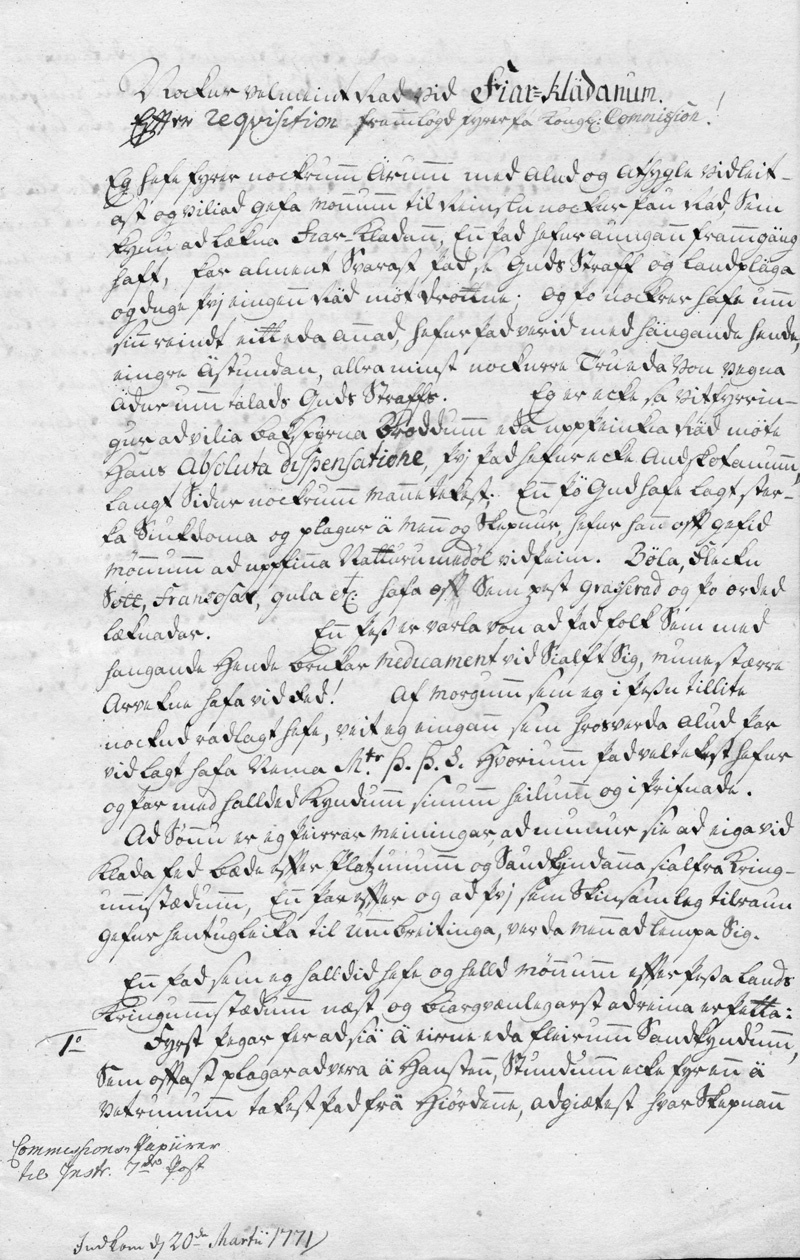 Nockur velmeint Rad vid Fiar-Kládanum.
Epter requisition frammlögd fyrer þa Kongl: Commission!
Eg hefe fyrer nockrumm Árumm med alud og athygle vidleit-
ast og viliad gefa mönnum til Reinslu nockur þau Rad, Sem
kynnu ad lækna Fiar-Kladann, Enn þad hefur aungann framgáng
haft, þar alment Svarast þad se Guds Straff og landplága
og duge þvi eingenn Rád mót drottne; og þo nockrer hafe umm
sinn reindt eitt eda annad, hefur þad verid med hángande hende,
eingre Ástundan, allraminst nockurre Tru eda Von vegna
ádur umtalads Guds Straffs. Eg er ecke sa vitfyrrin-
gur ad vilia bakspyrna Broddumm eda uppþeinkia Rád móte
Hans Absoluta dispensatione, þvi þad hefur ecke Andskotanumm,
langt Sidur nockrumm manne tekest; Enn þó Gud hafe lagt ster-
ka Siukdoma og plagur á menn og Skepnur, hefur hann oft gefid
mönnumm ad uppfinna Natturu medöl vid þeim. Bóla, Flecku
Sótt, Fransosar, gula etc: hafa oft Sem pest grasserad og þo orded
læknadar. Enn þess er varla von ad þad folk Sem med
hangande Hende brukar Medicament vid Sialft Sig, mune stærre
Arvekne hafa vid Fed! Af mörgumm sem eg i þessu tillite
nockud radlagt hefe, veit eg eingann sem hrosverda alud þar
vid lagt hafa Nema Mtr. Þ. Þ. S. Hvöriumm þad vel tekest hefur
og þar med halldid Kyndumm sinumm heilumm og i þrifnade.
Ad Sönnu er eg þeirrar meiningar, ad munur sie ad eiga vid
Klada fed bæde epter Platzunumm og Saudkyndanna sialfra Kring-
umstædumm, Enn þar epter og ad þvi sem Skinsamleg tilraun
gefur hentugleika til umbreitinga, verda menn ad lempa Sig.
Enn þad sem eg halldid hefe og helld mönnumm epter þessa lands
Kringumstædumm næst og biargvænlegast ad reina er þetta:
1o Fyrst þegar fer ad siá á eirne eda fleirumm Saudkyndumm,
Sem optast plagar ad vera á Haustenn, Stundumm ecke fyrr enn á
vetrunumm tekest þad frá Hiördenne, adgiætest hvar Skepnann
Commissions Papiirer
til Instr. 7de Post
Indkom d 20de Martii 1771